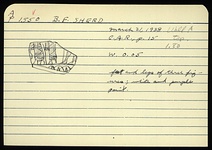 P 1550 B.F. SHERD
March 31, 1938
C.A.R., p. 15
W. 0.05
feet and legs of three fig-
ures; white and purple
paint.